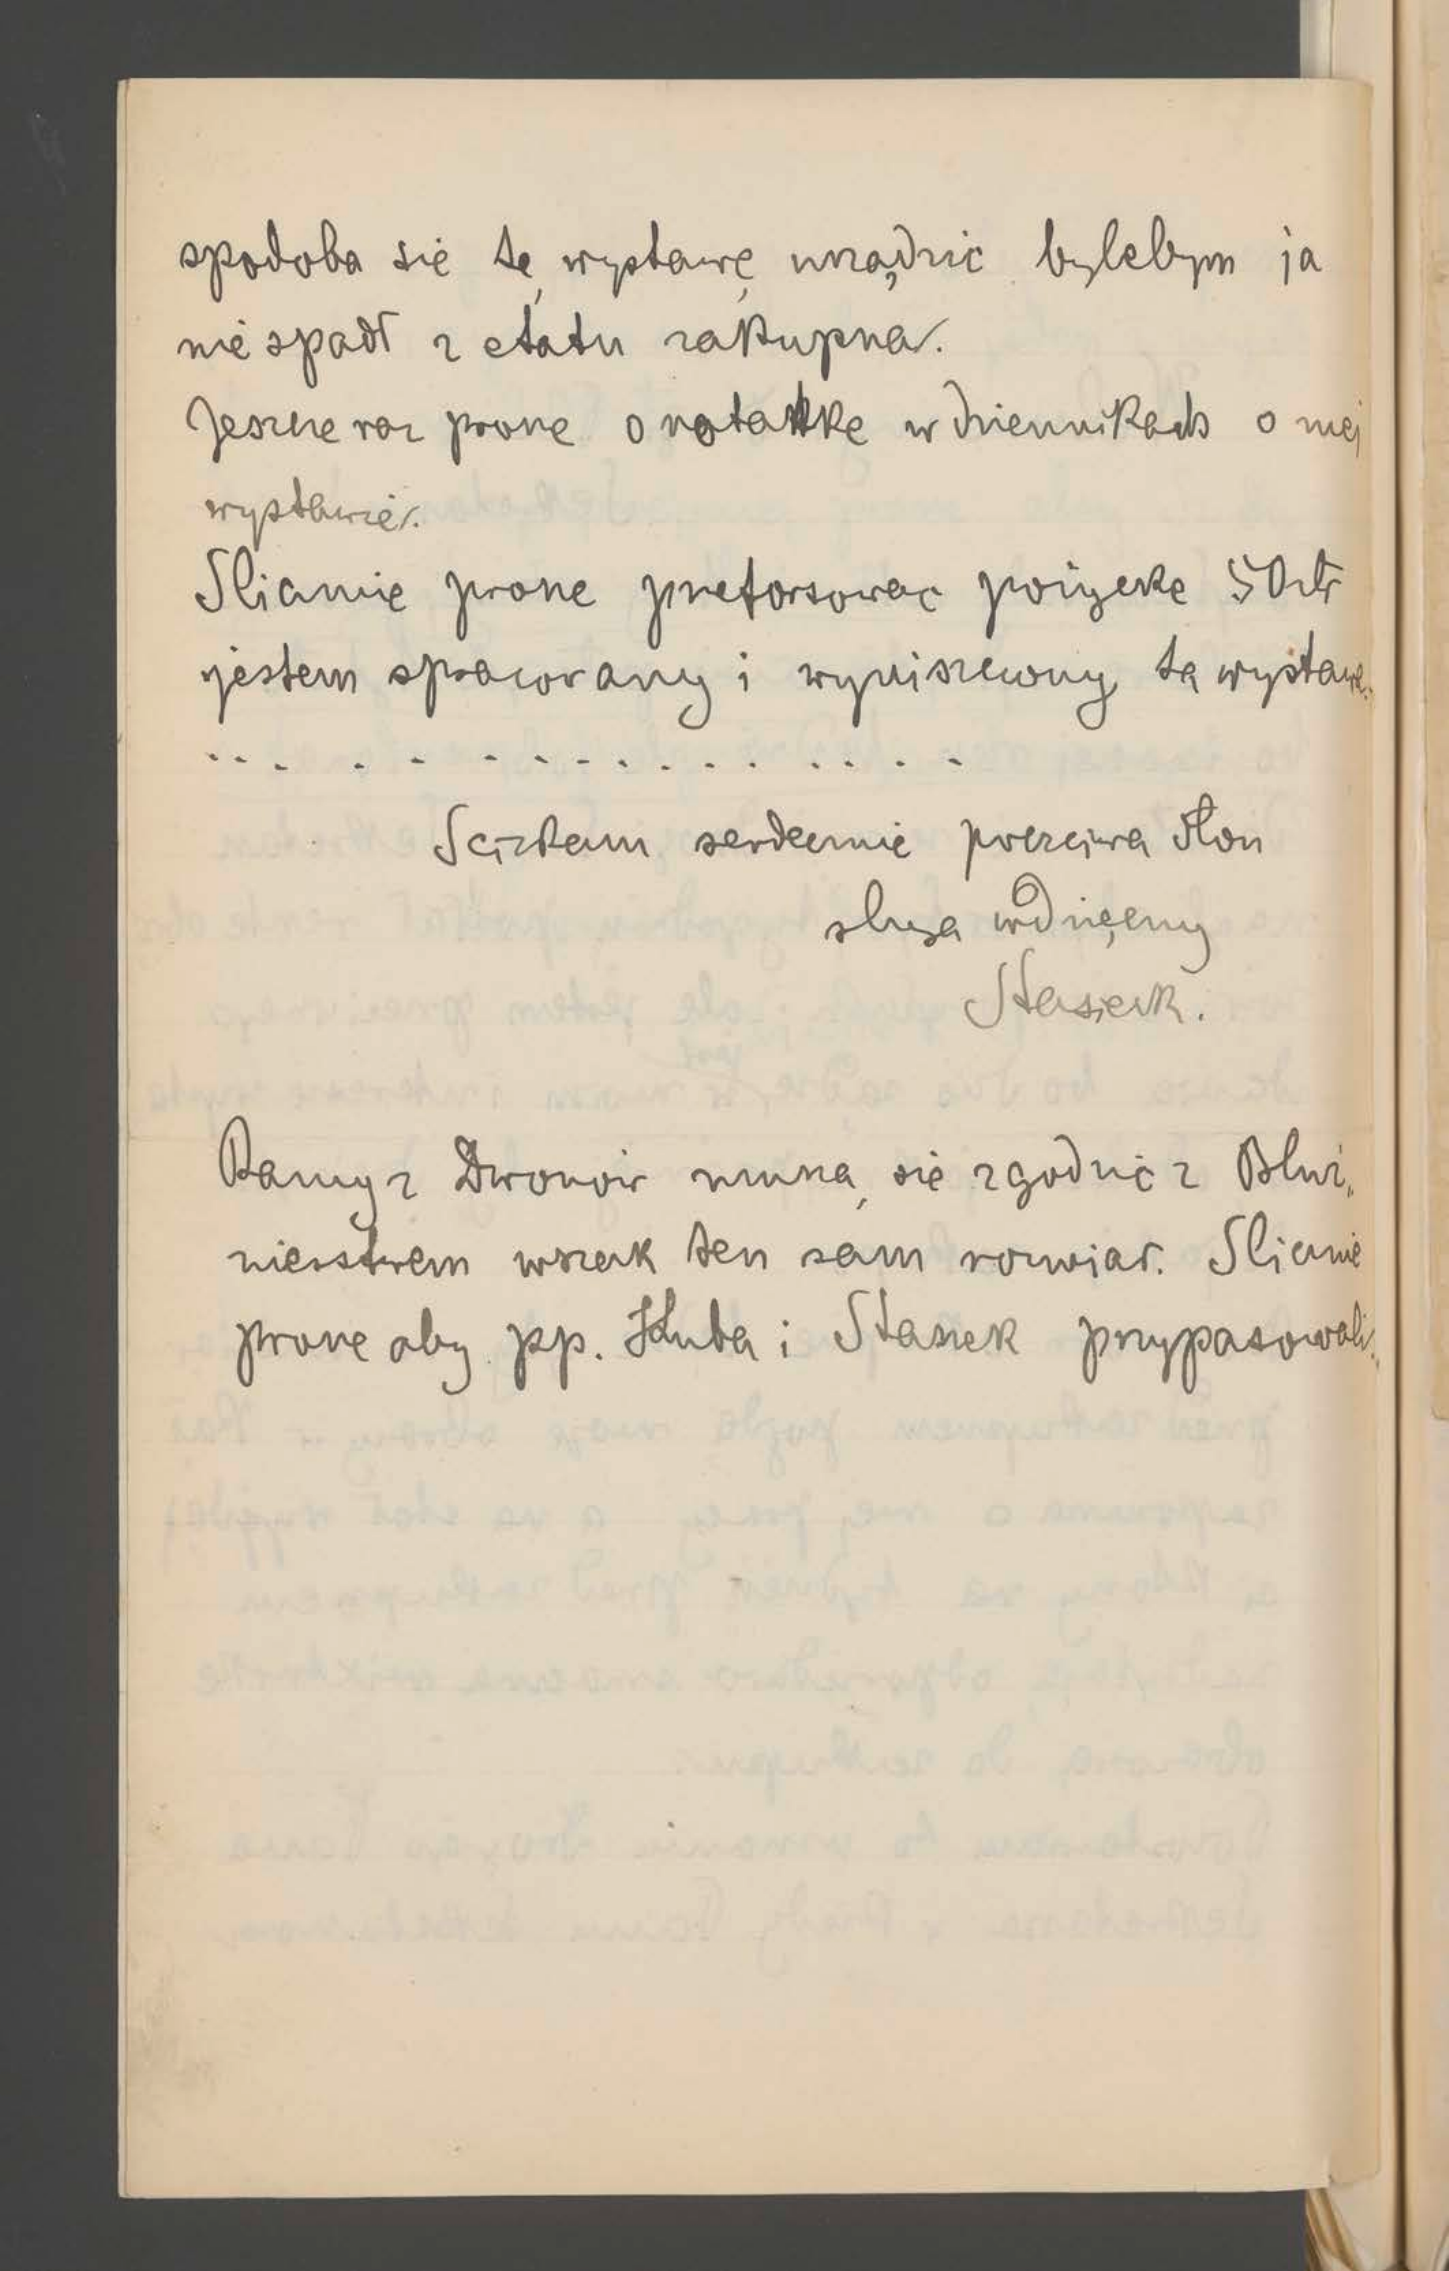 spodoba się tę wystawę urządzić bylebym ja
nie spadł z etatu zakupna.
Jeszcze raz proszę o notatkę w dziennikach o mej
wystawie.
Slicznie proszę przeforsować pożyczkę 50 złr
jestem spracowany i wyniszczony tą wystawą.
.. . . . . . . . . . . . . . . .
Sciskam serdecznie poczciwą dłoń
sługa wdzięczny
Stasiek.
Ramy z Dworów muszą się zgodzić z Bluź„
nierstwem wszak ten sam rozmiar. Slicznie
proszę aby pp. Kuba i Staszek przypasowali.